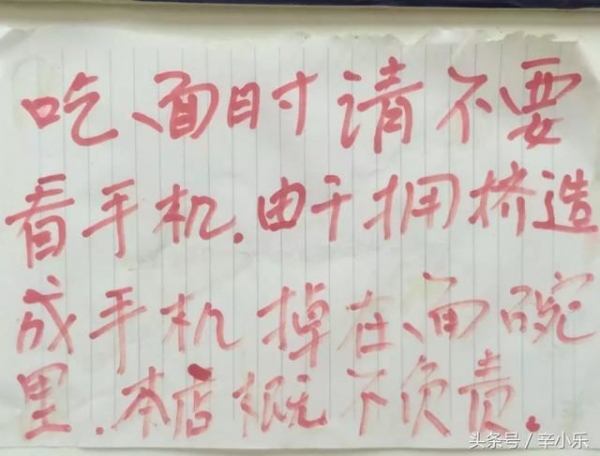 吃面时请不要
看手机.由于拥挤造
成手机掉在面碗
里.本店概不负责.
头条号/辛小乐